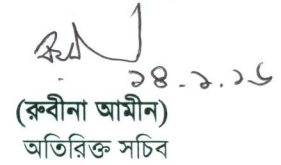 ১৪.১.১৬
(রুবীনা আমীন)
অতিরিক্ত সচিব